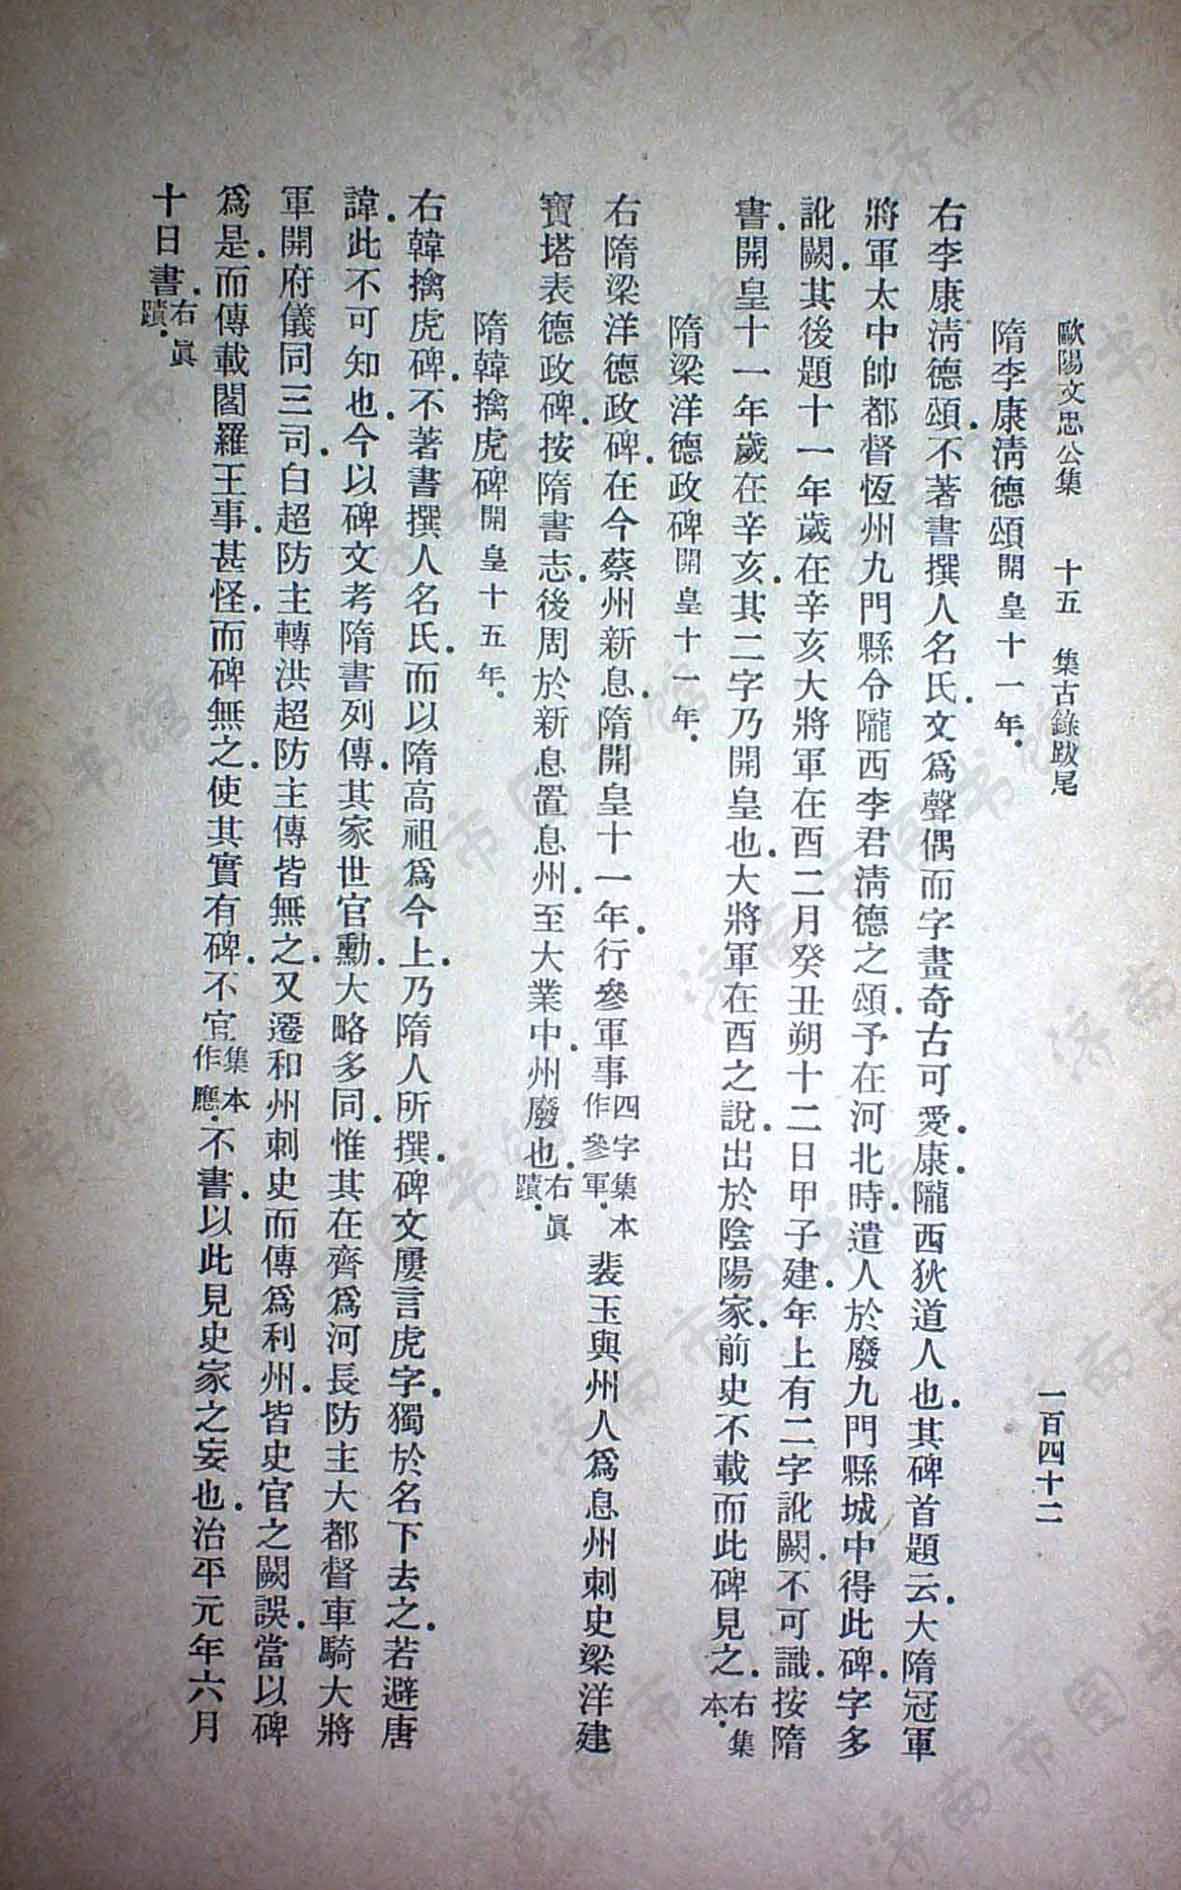 歐陽文忠公集　十五　集古錄跋尾　一百四十二
隋李康淸德頌開皇十一年。
右李康淸德頌。不著書撰人名氏。文爲聲偶而字畫奇古可愛。康。隴西狄道人也。其碑首題云。大隋冠軍
將軍太中帥都督恆州九門縣令隴西李君淸德之頌。予在河北時。遣人於廢九門縣城中得此碑。字多
訛闕。其後題十一年歲在辛亥大將軍在酉二月癸丑朔十二日甲子建。年上有二字訛闕。不可識。按隋
書。開皇十一年歲在辛亥。其二字乃開皇也。大將軍在酉之說。出於陰陽家。前史不載而此碑見之。右集本。
隋梁洋德政碑開皇十一年。
右隋梁洋德政碑。在今蔡州新息。隋開皇十一年。行參軍事四字集本作參軍。裴玉與州人爲息州刺史梁洋建
寶塔表德政碑。按隋書志。後周於新息置息州。至大業中。州廢也。右眞蹟。
隋韓擒虎碑開皇十五年。
右韓擒虎碑。不著書撰人名氏。而以隋高祖爲今上。乃隋人所撰。碑文屢言虎字。獨於名下去之。若避唐
諱。此不可知也。今以碑文考隋書列傳。其家世官勳。大略多同。惟其在齊爲河長防主大都督車騎大將
軍開府儀同三司。白超防主轉洪超防主傳皆無之。又遷和州刺史而傳爲利州。皆史官之闕誤。當以碑
爲是。而傳載閻羅王事。甚怪。而碑無之。使其實有碑。不宜集本作應。不書。以此見史家之妄也。治平元年六月
十日書。右眞蹟。
济南市图书馆